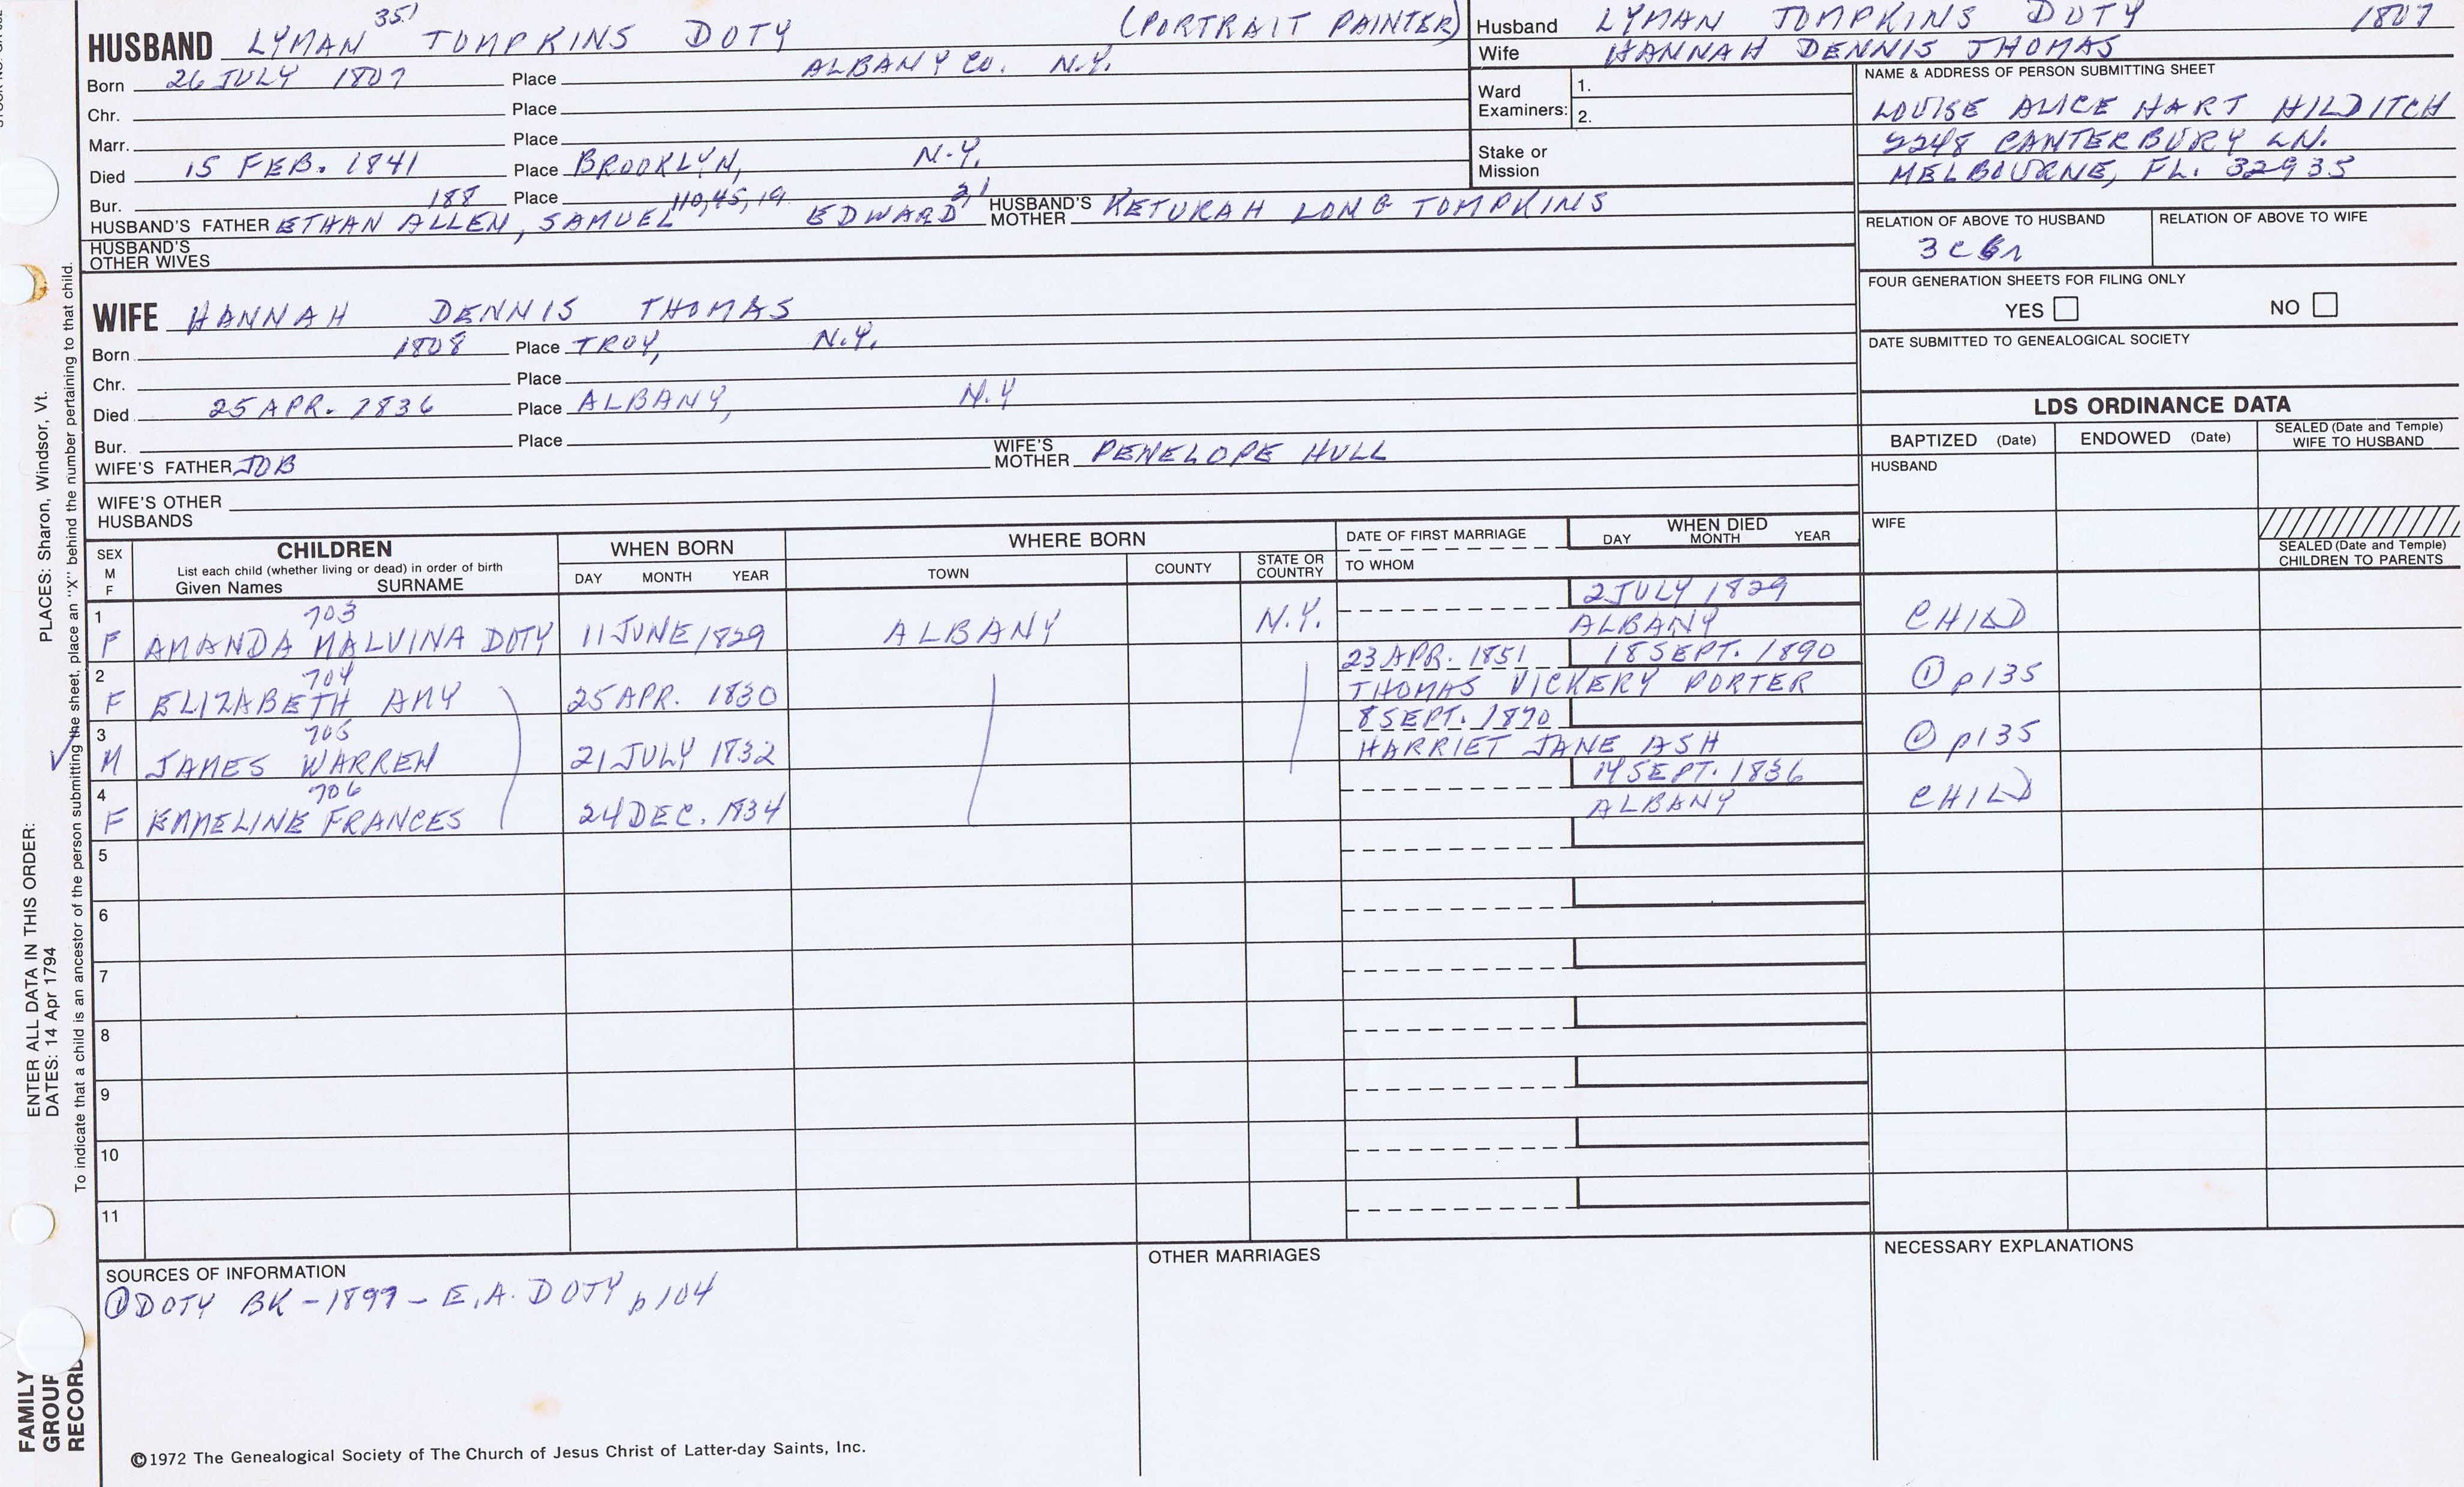 351
HUSBAND LYMAN TOMPKINS DOTY (PORTRAIT PAINTER)
Born 26 JULY 1807 Place ALBANY CO. N.Y.
Chr. Place
Marr. Place
Died 15 FEB. 1841 Place BROOKLYN, N.Y.
Bur. Place
188 110,45,19 21
HUSBAND'S FATHER ETHAN ALLEN, SAMUEL EDWARD HUSBAND'S MOTHER KETURAH LONG TOMPKINS
HUSBAND'S OTHER WIVES
WIFE HANNAH DENNIS THOMAS
Born 1808 Place TROY, N.Y.
Chr. Place
Died 25 APR. 1836 Place ALBANY, N.Y
Bur. Place
WIFE'S FATHER JOB WIFE'S MOTHER PENELOPE HULL
WIFE'S OTHER HUSBANDS
Husband LYMAN TOMPKINS DOTY 1807
Wife HANNAH DENNIS THOMAS
Ward Examiners: 1. 2.
Stake or Mission
NAME & ADDRESS OF PERSON SUBMITTING SHEET
LOUISE ALICE HART HILDITCH
2248 CANTERBURY LN.
MELBOURNE, FL. 32935
RELATION OF ABOVE TO HUSBAND RELATION OF ABOVE TO WIFE
FOUR GENERATION SHEETS FOR FILING ONLY
YES NO
DATE SUBMITTED TO GENEALOGICAL SOCIETY
LDS ORDINANCE DATA
BAPTIZED (Date) ENDOWED (Date) SEALED (Date and Temple) WIFE TO HUSBAND
HUSBAND
WIFE
SEALED (Date and Temple) CHILDREN TO PARENTS
SEX M F CHILDREN WHEN BORN WHERE BORN DATE OF FIRST MARRIAGE WHEN DIED
List each child (whether living or dead) in order of birth
Given Names SURNAME DAY MONTH YEAR TOWN COUNTY STATE OR COUNTRY TO WHOM DAY MONTH YEAR
1 703 2 JULY 1829
F AMANDA MALVINA DOTY 11 JUNE 1829 ALBANY N.Y. ALBANY CHILD
2 704 23 APR. 1851 18 SEPT. 1890
F ELIZABETH AMY 25 APR. 1830 THOMAS VICKERY PORTER ① p135
3 705 8 SEPT. 1870
M JAMES WARREN 21 JULY 1832 HARRIET JANE ASH ① p135
4 706 14 SEPT. 1836
F EMMELINE FRANCES 24 DEC. 1834 ALBANY CHILD
5
6
7
8
9
10
11
SOURCES OF INFORMATION
① DOTY BK - 1897 - E.A. DOTY p 104
OTHER MARRIAGES
NECESSARY EXPLANATIONS
©1972 The Genealogical Society of The Church of Jesus Christ of Latter-day Saints, Inc.
ENTER ALL DATA IN THIS ORDER:
DATES: 14 Apr 1794
PLACES: Sharon, Windsor, Vt.
To indicate that a child is an ancestor of the person submitting the sheet, place an "X" behind the number pertaining to that child.
FAMILY
GROUP
RECORD